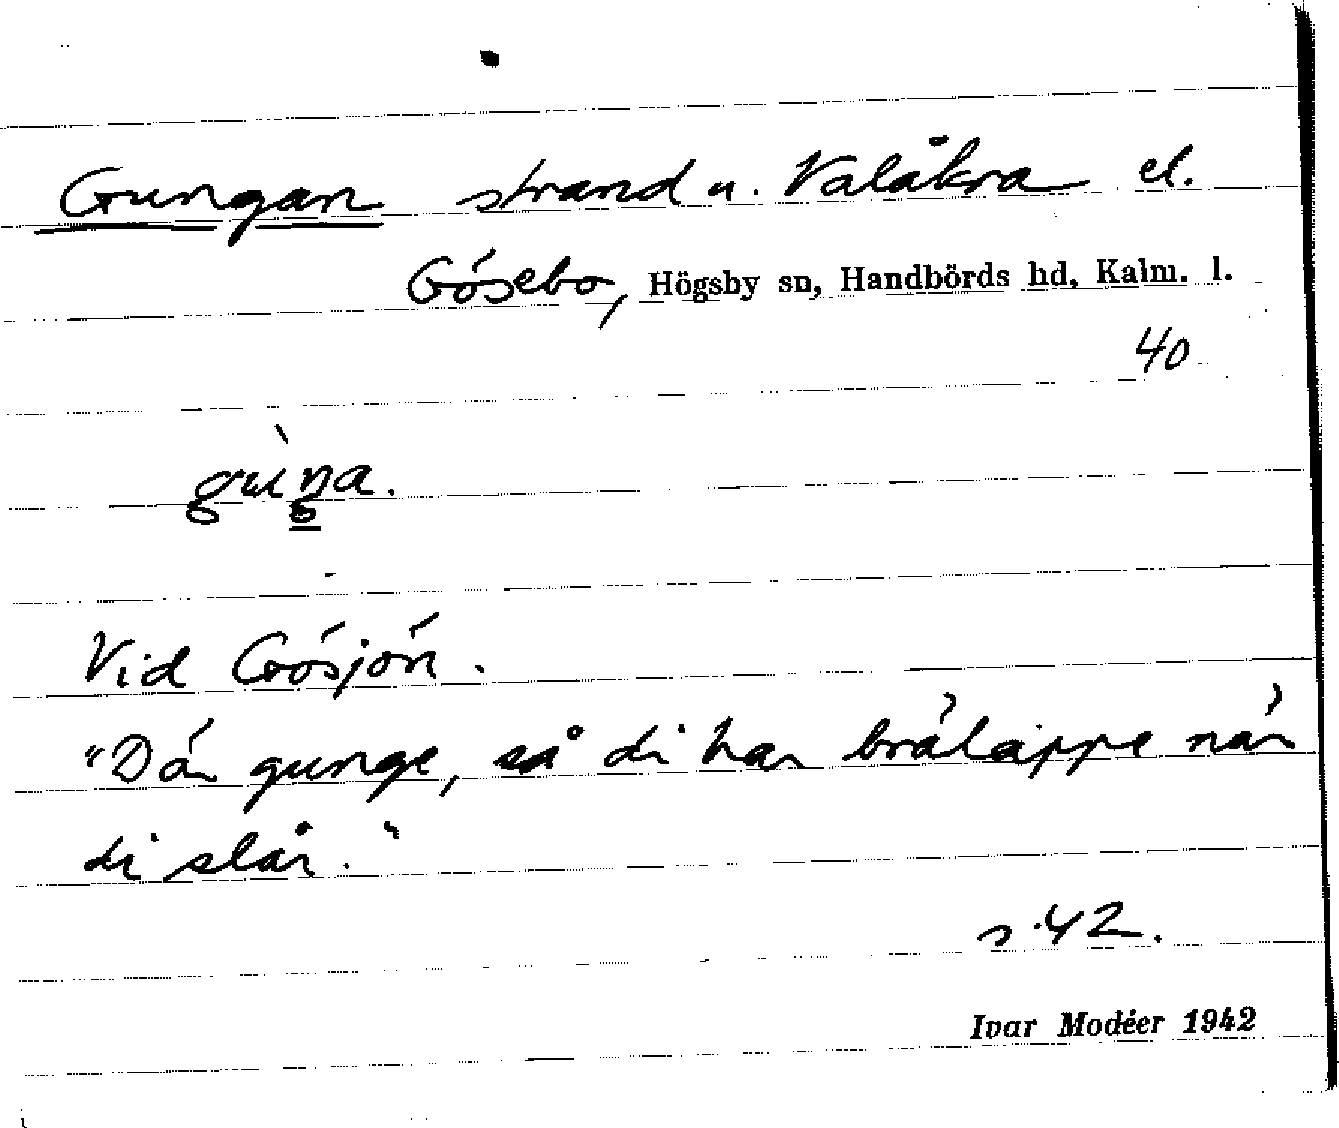 Gungan strand u. Valåkra el.
Gösebo, Högsby sn, Handbörds hd, Kalm. l.
40
gùŋa.
Vid Gösjön.
"Dä gunge, så di har bräläppe när
di slår."
s. 42.
Ivar Modéer 1942